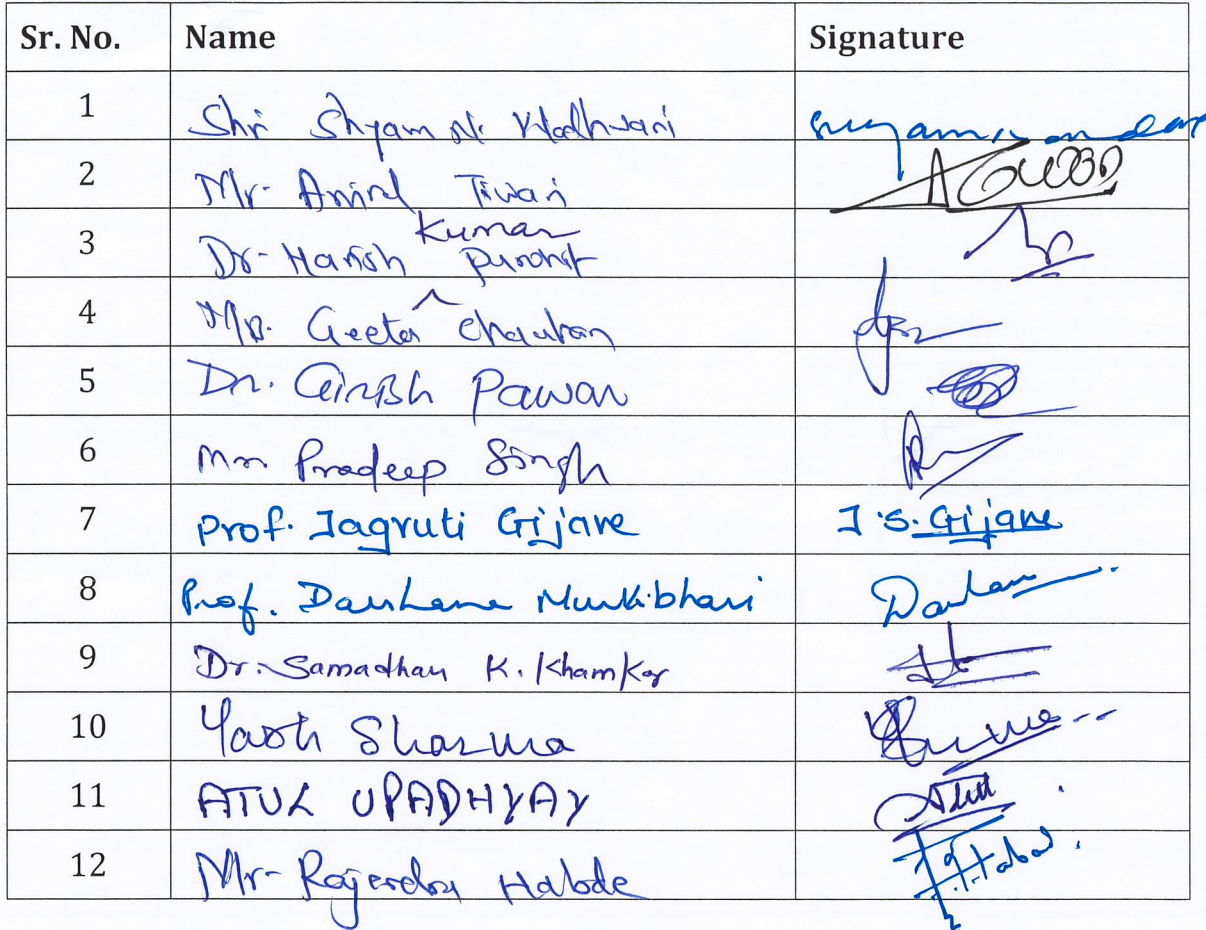 Sr. No. Name Signature
1 Shri Shyam N. Wadhwani
2 Mr. Amind Tiwari
3 Dr. Harish Kumar Purohit
4 Mrs. Geeta Chauhan
5 Dr. Girish Pawar
6 Mr. Pradeep Singh
7 Prof. Jagruti Gijare J.S. Gijare
8 Prof. Darshana Murkibhavi Darshan
9 Dr. Samadhan K. Khamkar
10 Yash Sharma
11 ATUL UPADHYAY Atul
12 Mr. Rajendra Habde